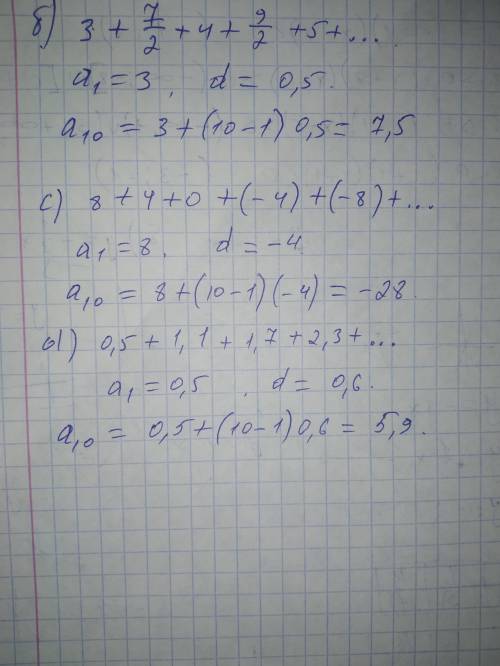 б) 3 + 7/2 + 4 + 9/2 + 5 + ...
a₁ = 3, d = 0,5.
a₁₀ = 3 + (10 - 1) 0,5 = 7,5
c) 8 + 4 + 0 + (-4) + (-8) + ...
a₁ = 8, d = -4
a₁₀ = 8 + (10 - 1)(-4) = -28.
d) 0,5 + 1,1 + 1,7 + 2,3 + ...
a₁ = 0,5, d = 0,6.
a₁₀ = 0,5 + (10 - 1) 0,6 = 5,9.